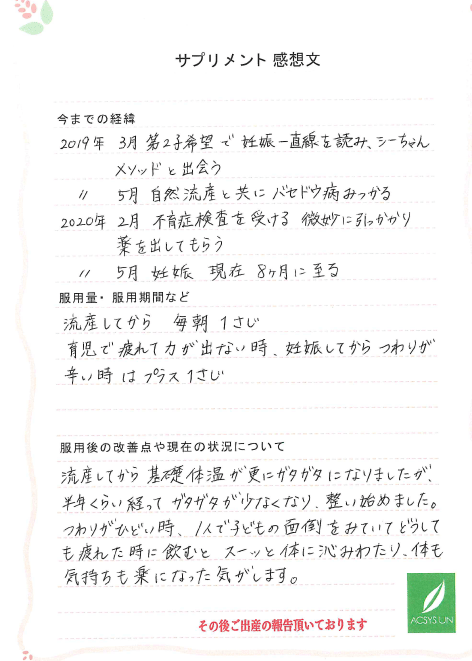 サプリメント 感想文
今までの経緯
2019年 3月 第2子希望で妊娠一直線を読み、シーちゃん
メソッドと出会う
〃 5月 自然流産と共にバセドウ病みつかる
2020年 2月 不育症検査を受ける 微妙に引っかかり
薬を出してもらう
〃 5月 妊娠 現在 8ヶ月に至る
服用量・服用期間など
流産してから 毎朝 1さじ
育児で疲れて力が出ない時、妊娠してからつわりが
辛い時はプラス1さじ
服用後の改善点や現在の状況について
流産してから基礎体温が更にガタガタになりましたが、
半年くらい経ってガタガタが少なくなり、整い始めました。
つわりがひどい時、1人で子どもの面倒をみていてどうして
も疲れた時に飲むと スーッと体に沁みわたり、体も
気持ちも楽になった気がします。
ACSYS UN
その後ご出産の報告頂いております